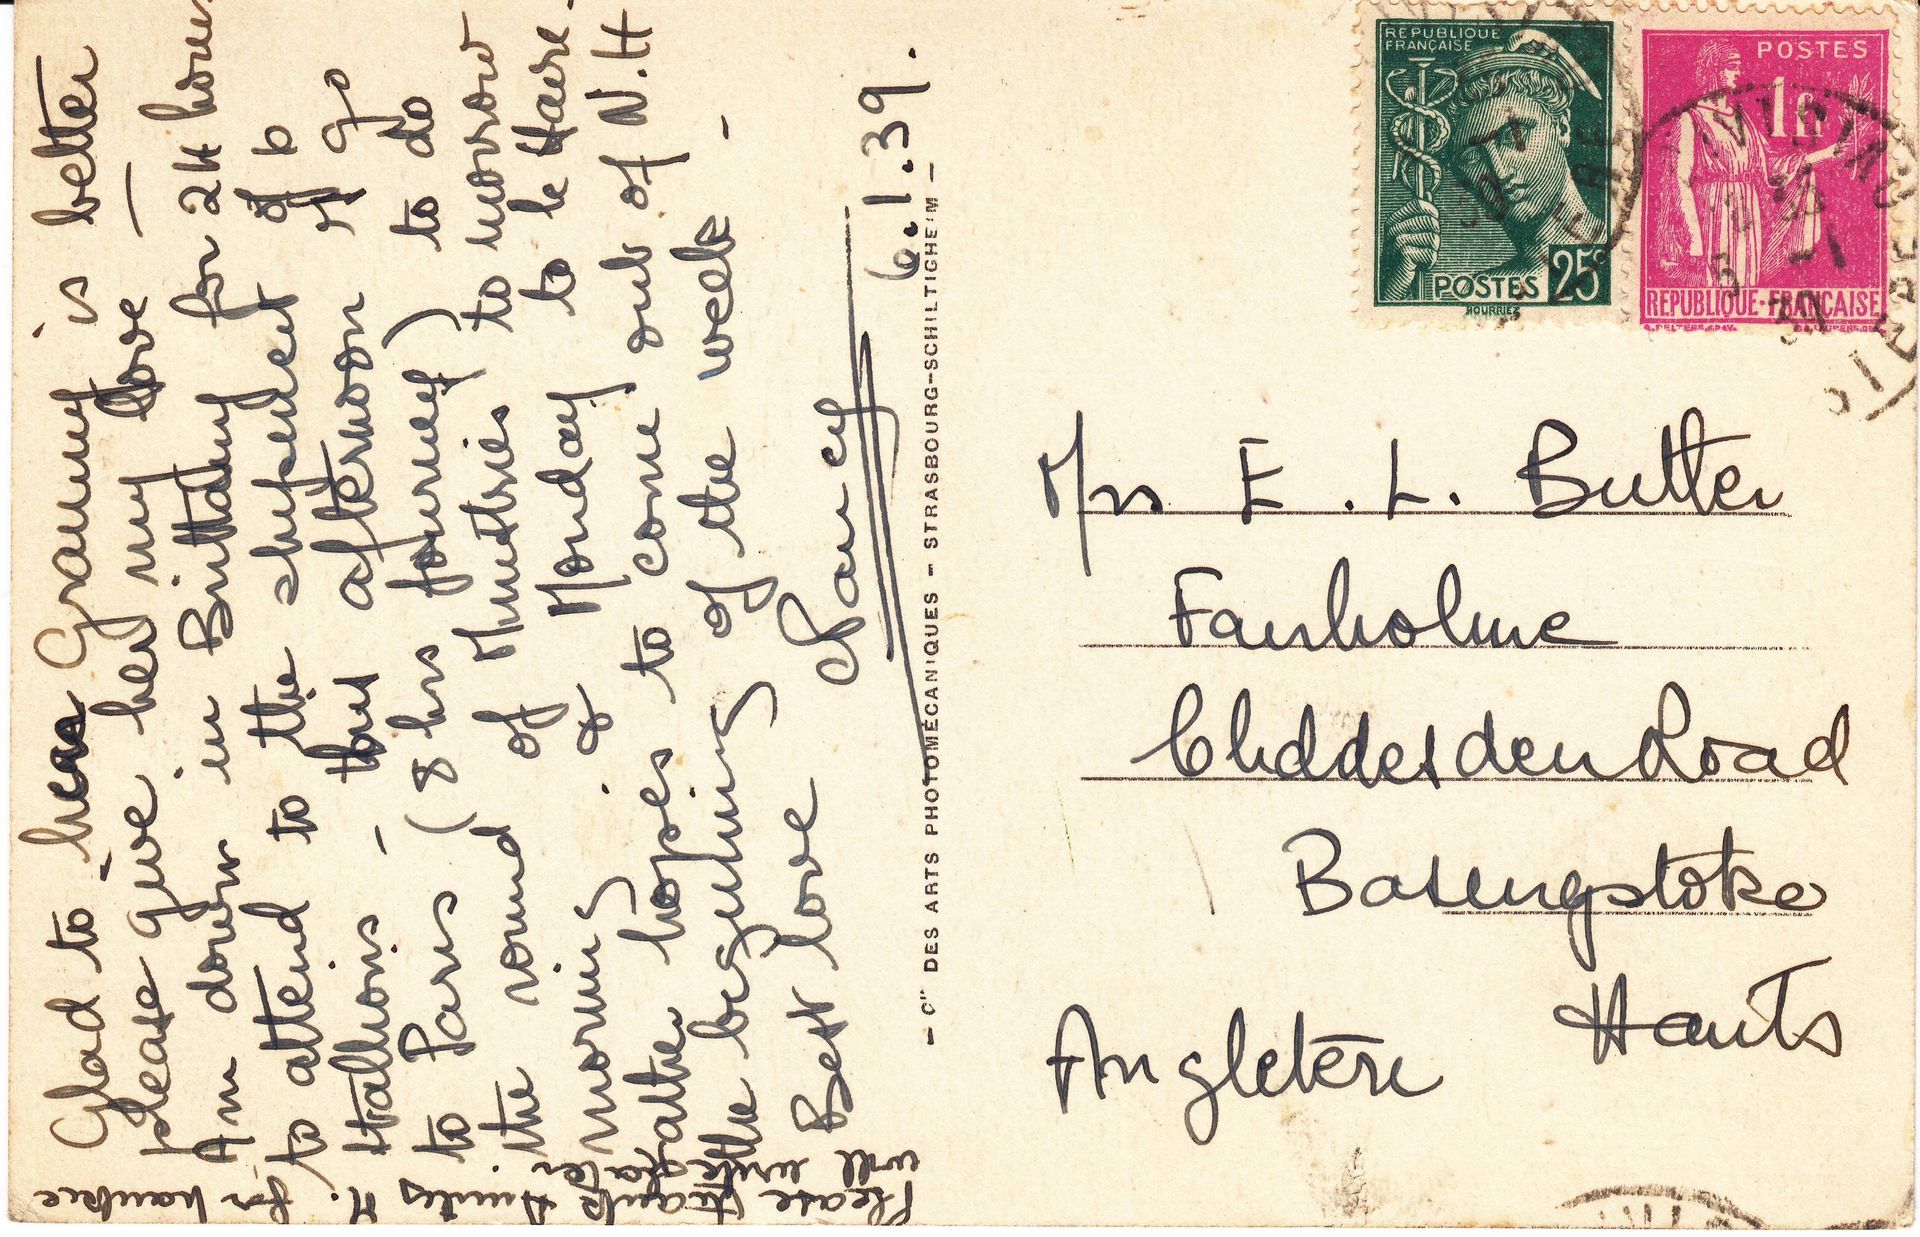 Glad to hear Granny is better
please give her my love —
Am down in Brittany for 24 hours
to attend to the shipment of 6
stallions - this afternoon I go
to Paris (8 hrs journey) to do
the round of Ministries tomorrow
morning & Monday to le Havre -
father hopes to come out of N.H
the beginning of the week -
Best love Nancy
6.1.39.
Please thank
will write later
— Cie DES ARTS PHOTOMÉCANIQUES — STRASBOURG-SCHILTIGHEIM —
RÉPUBLIQUE
FRANÇAISE
POSTES 25c
HOURRIEZ
POSTES
1F
REPUBLIQUE-FRANÇAISE
Mrs E. L. Butler
Fairholme
Cliddesden Road
Basingstoke
Hants
Angletère